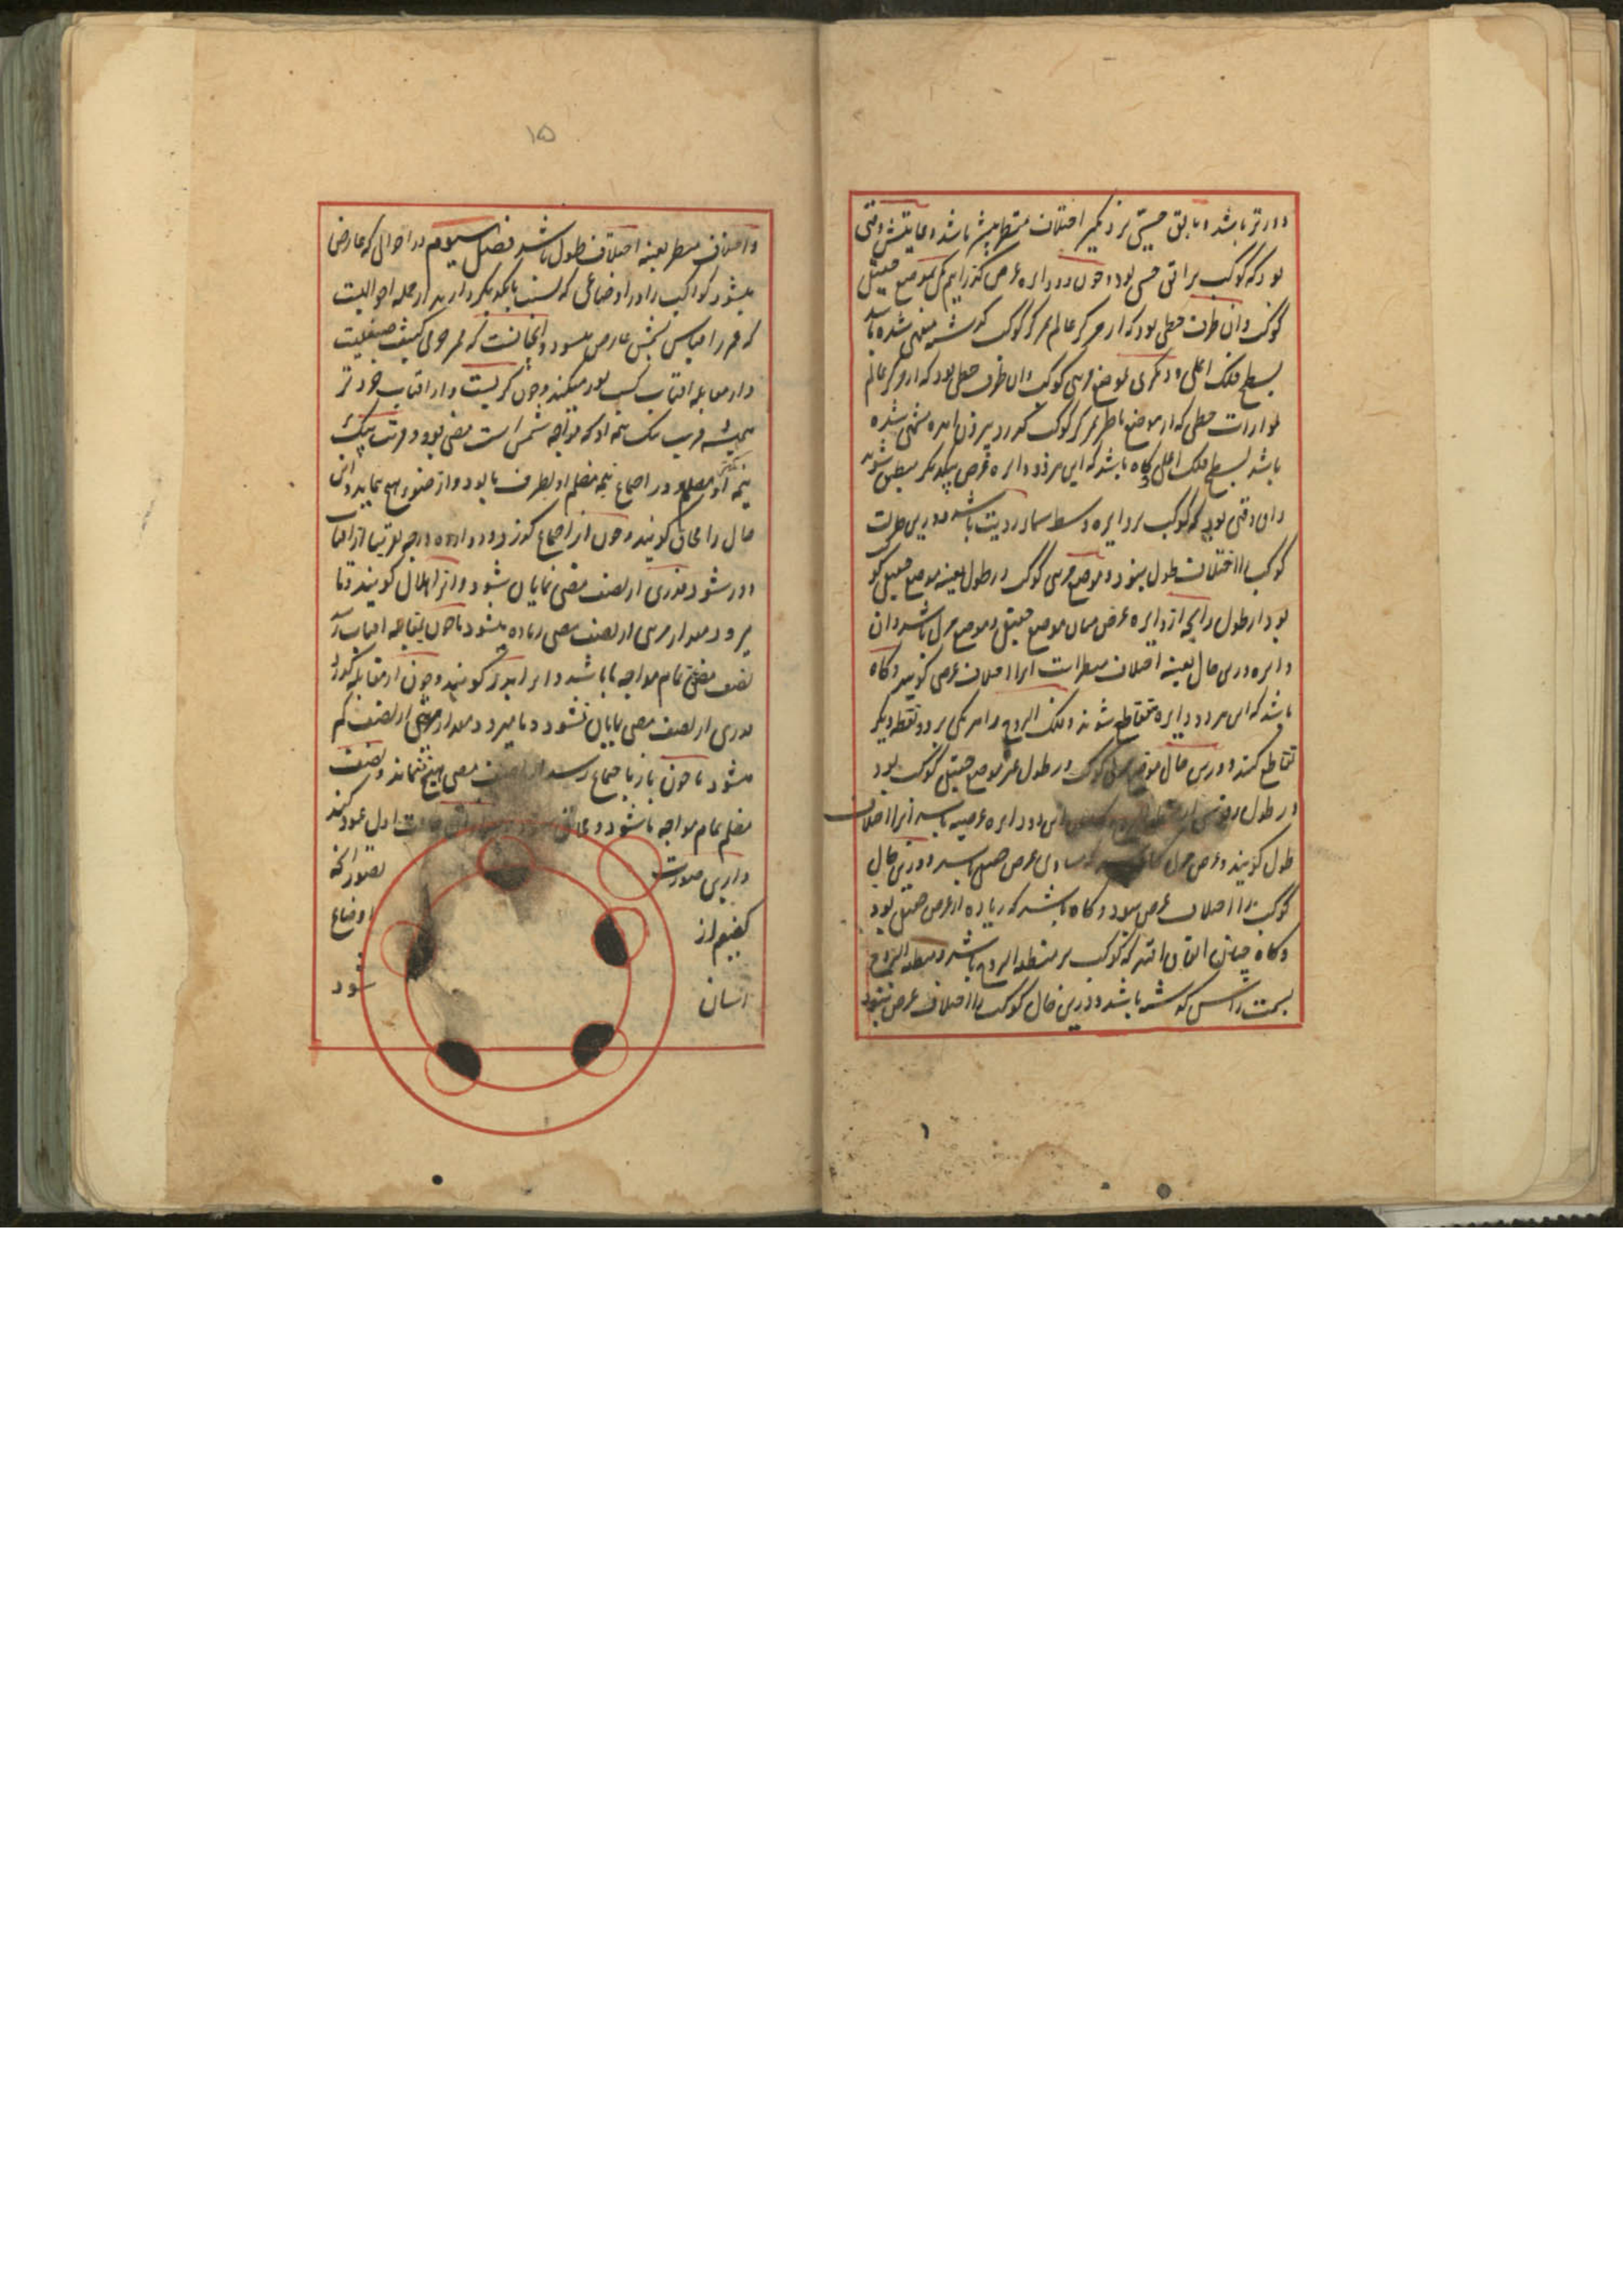 دورتر باشد و بافق حسی نزدیکتر اختلاف منظر بیش باشد و غایتش وقتی
بود که کوکب بر افق حسی بود و چون دو دایره عرض گذرانیم یکی بموضع حقیقی
کوکب وان طرف خطی بود که از مرکز عالم بمرکز کوکب گذشته منتهی شده باشد
بسطح فلک اعلی و دیگری بموضع مرئی کوکب وان طرف خطی بود که از مرکز عالم
بموازات خطی که از موضع ناظر بمرکز کوکب گذرد بیرون آمده منتهی شده
باشد بسطح فلک اعلی گاه باشد که این هر دو دایره عرض بیکدیگر منطبق شوند
وان وقتی بود که کوکب بر دایره وسط سماء رویت باشد و درین حالت
کوکب را اختلاف طول نبود و موضع مرئی کوکب در طول بعینه موضع حقیقی او
بود در طول و آنچه از دایره عرض میان موضع حقیقی و موضع مرئی باشد وان
دایره درین حال بعینه اختلاف منظر است انرا اختلاف عرض گویند و گاه
باشد که این هر دو دایره متقاطع شوند و فلک البروج را هر یکی بر دو نقطه دیگر
تقاطع کنند و درین حال موضع مرئی کوکب در طول غیر موضع حقیقی کوکب بود
در طول و قوسی از منطقه البروج که میان این دو دایره عرضیه باشد انرا اختلاف
طول گویند و عرض مرئی گاه باشد که مساوی عرض حقیقی باشد و درین حال
کوکب را اختلاف عرض نبود و گاه باشد که زیاده از عرض حقیقی بود
و گاه چنان اتفاق افتد که کوکب بر منطقه البروج باشد و منطقه البروج
بسمت راس گذشته باشد و درین حال کوکب را اختلاف عرض نبود
۱۵
و اختلاف منظر بعینه اختلاف طول باشد فصل سیوم در احوالی که عارض
میشود کواکب را در اوضاعی که نسبت بایکدیگر دارند از جمله احوالیست
که قمر را بقیاس بشمس عارض میشود و آنچنانست که قمر جرمی کثیف صیقلیست
و از مقابله افتاب کسب نور میکند و چون کریست و از افتاب خردتر
همیشه قریب یک نیمه او که مواجه شمس است مضی بود و قریب یک
نیمه دیگر او مظلم و در اجتماع نیمه مظلم او بطرف ما بود و از ضوء هیچ ننماید و این
حال را محاق گویند و چون از اجتماع گذرد و دوازده درجه تقریبا از افتاب
دور شود قدری از نصف مضی نمایان شود و انرا هلال گویند و تا
میرود مقدار مرئی از نصف مضی زیاده میشود تا چون بمقابله افتاب رسد
نصف مضی تمام مواجه ما باشد و انرا بدر گویند و چون از مقابله گذرد
قدری از نصف مضی نمایان نشود و تا میرود مقدار مرئی از نصف کم
میشود تا چون باز باجتماع رسد از نصف مضی هیچ ننماید و نصف
مظلم تمام مواجه ما شود و محاق حالت اول عود کند
و ازین صورت تصور آنچه
گفتیم از اوضاع
آسان شود